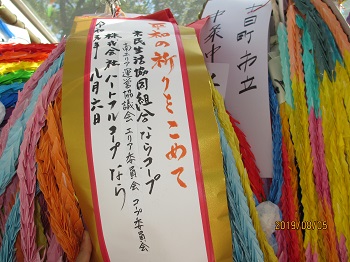 平和の祈りをこめて
市民生活協同組合ならコープ
南エリア運営協議会 エリア委員会 コープ委員会
株式会社ハートフルコープなら
令和元年 八月六日
町市立
中
2019/08/05